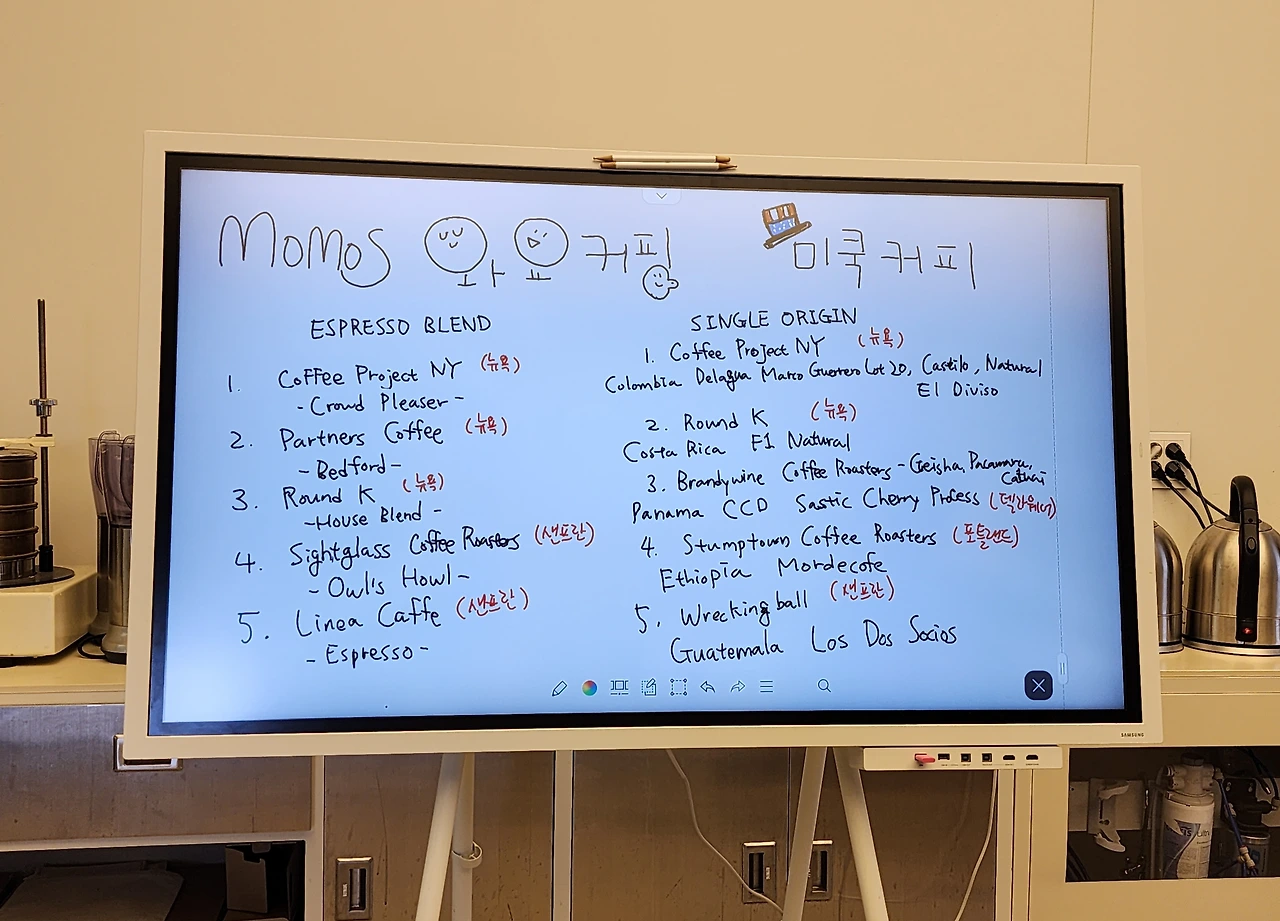 MOMOS 와요 커핑
미국 커피
ESPRESSO BLEND
1. Coffee Project NY (뉴욕)
- Crowd Pleaser -
2. Partners Coffee (뉴욕)
- Bedford -
3. Round K (뉴욕)
- House Blend -
4. Sightglass Coffee Roasters (샌프란)
- Owl's Howl -
5. Linea Caffe (샌프란)
- Espresso -
SINGLE ORIGIN
1. Coffee Project NY (뉴욕)
Colombia Delagua Marco Guerrero Lot 20, Castilo, Natural
El Diviso
2. Round K (뉴욕)
Costa Rica F1 Natural
3. Brandywine Coffee Roasters - Geisha, Pacamara,
Catuai
Panama CCD Sastic Cherry Process (델라웨어)
4. Stumptown Coffee Roasters (포틀랜드)
Ethiopia Mordecofe
5. Wrecking ball (샌프란)
Guatemala Los Dos Socios
SAMSUNG